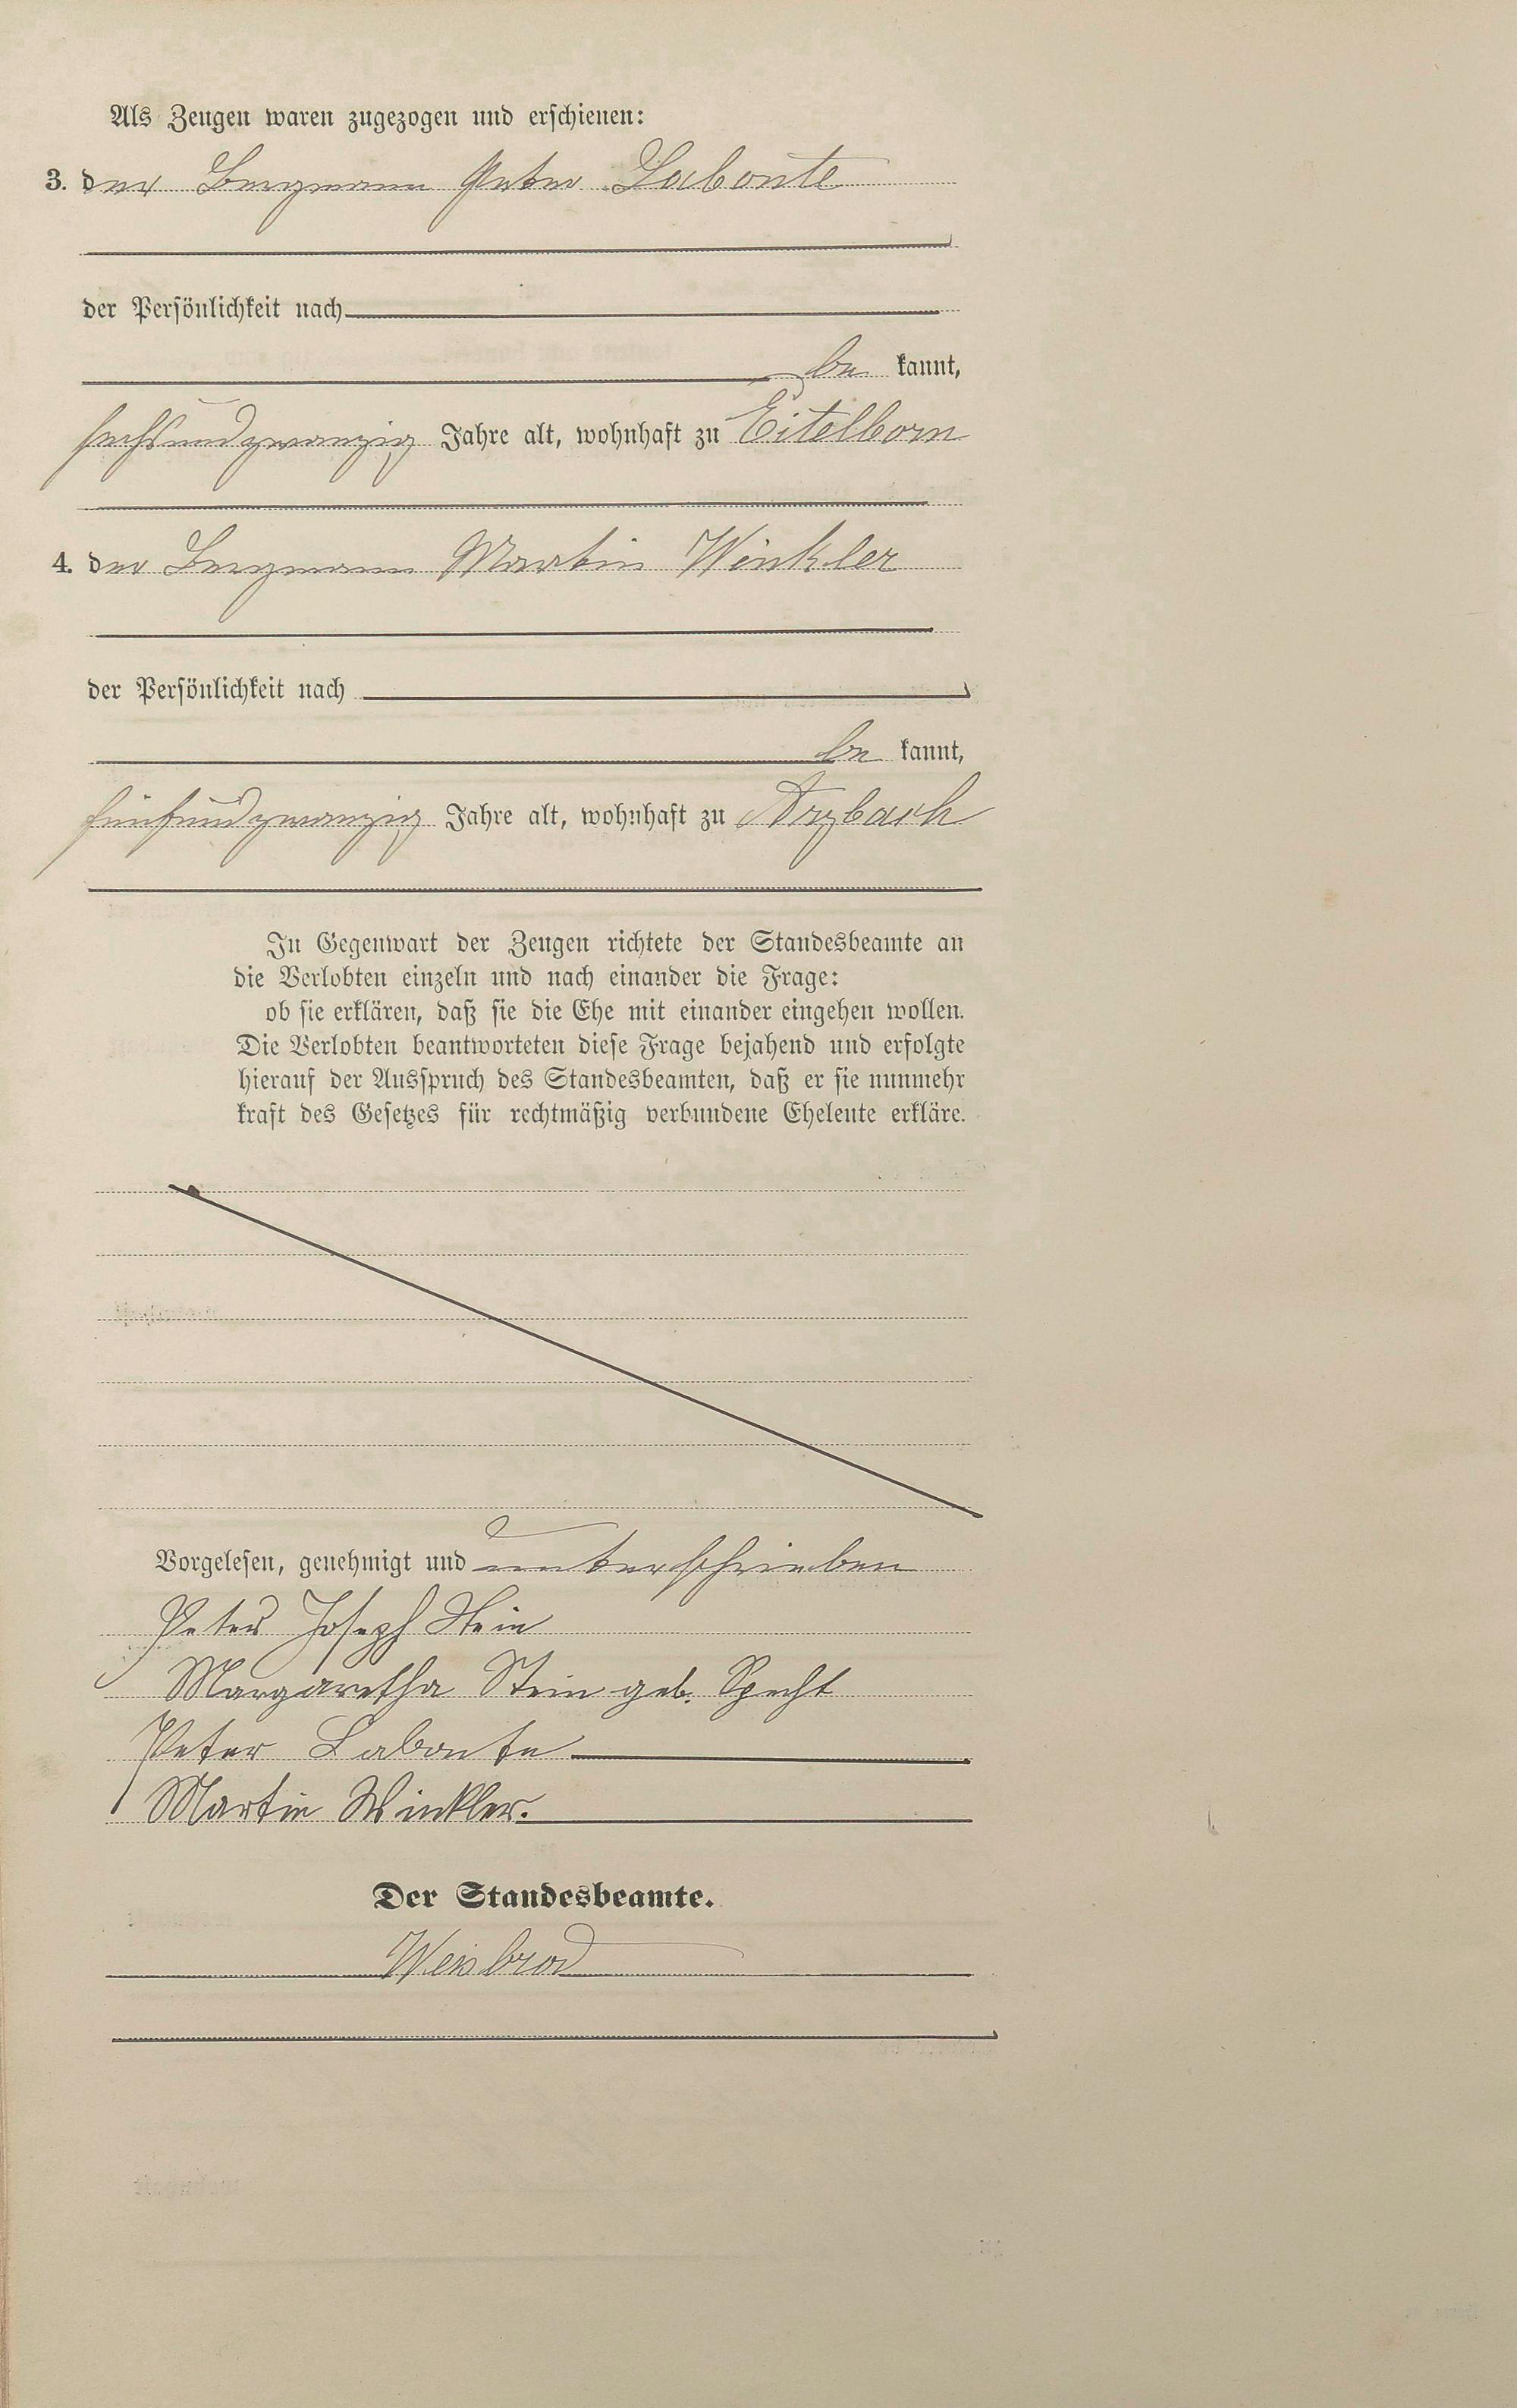 Als Zeugen waren zugezogen und erschienen:
3. der Bergmann Peter Labonte
der Persönlichkeit nach
be kannt,
sechsundzwanzig Jahre alt, wohnhaft zu Eitelborn
4. der Bergmann Martin Winkler
der Persönlichkeit nach
be kannt,
fünfundzwanzig Jahre alt, wohnhaft zu Arzbach
In Gegenwart der Zeugen richtete der Standesbeamte an
die Verlobten einzeln und nach einander die Frage:
ob sie erklären, daß sie die Ehe mit einander eingehen wollen.
Die Verlobten beantworteten diese Frage bejahend und erfolgte
hierauf der Ausspruch des Standesbeamten, daß er sie nunmehr
kraft des Gesetzes für rechtmäßig verbundene Eheleute erkläre.
Vorgelesen, genehmigt und unterschrieben
Peter Joseph Stein
Margaretha Stein geb. Specht
Peter Labonte
Martin Winkler.
Der Standesbeamte.
Weisbrod